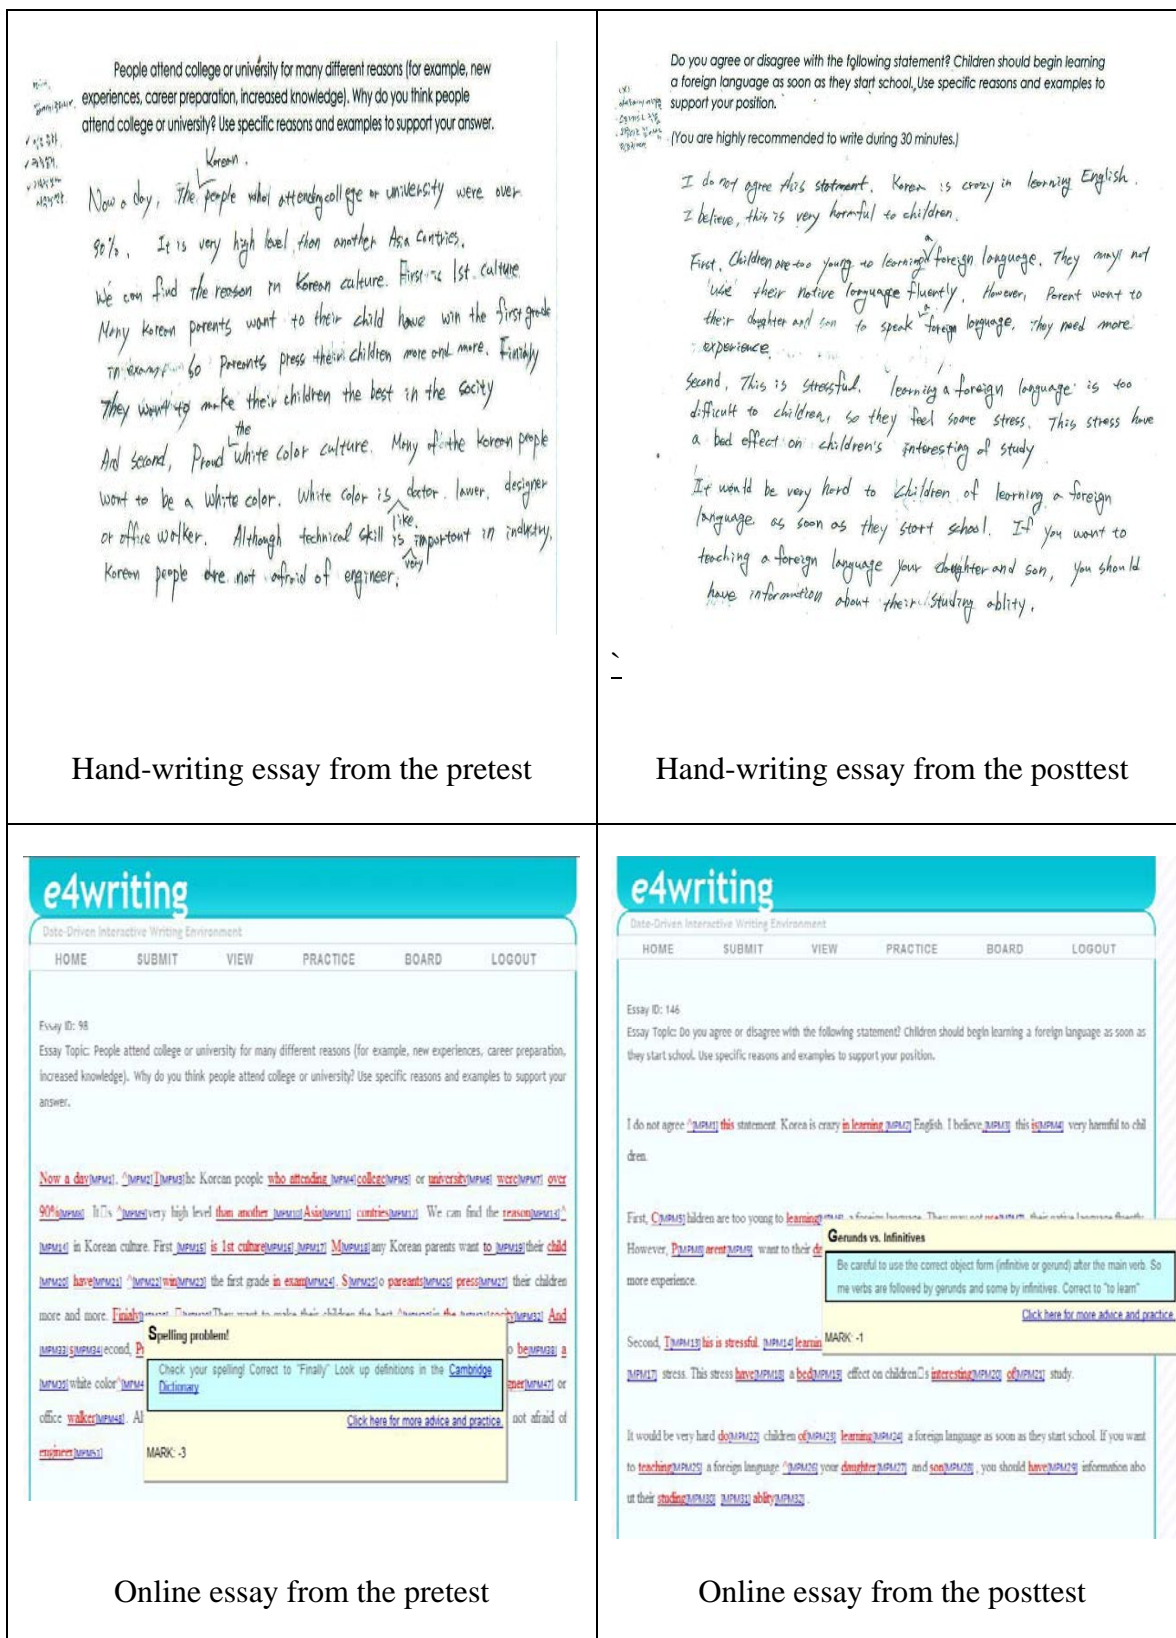 People attend college or university for many different reasons (for example, new
experiences, career preparation, increased knowledge). Why do you think people
attend college or university? Use specific reasons and examples to support your answer.
Korean.
Now a day, The people who attending college or university were over
90%. It is very high level than another Asia contries.
We can find the reason in Korean culture. First is 1st culture
Many Korean parents want to their child have win the first grade
in exam. So pareants press their children more and more. Finialy
They want to make their children the best in the socity
the
And second, Proud white color culture. Many of the Korean people
want to be a white color. White color is doctor, lawer, designer
like.
or office walker. Although technical skill is important in industry,
very
Korean people are not afraid of engineer.
Hand-writing essay from the pretest
Do you agree or disagree with the following statement? Children should begin learning
a foreign language as soon as they start school. Use specific reasons and examples to
support your position.
(You are highly recommended to write during 30 minutes.)
I do not agree this statment. Korea is crazy in learning English.
I believe, this is very harmful to children.
a
First, Children are too young to learning foreign language. They may not
use their native language fluently. However, Parent want to
a
their daughter and son to speak foreign language. They need more
experience.
Second, This is stressful. learning a foreign language is too
difficult to children, so they feel some stress. This stress have
a bed effect on children's interesting of study
It would be very hard to children of learning a foreign
language as soon as they start school. If you want to
teaching a foreign language your daughter and son, you should
have information about their studing ablity.
`
Hand-writing essay from the posttest
e4writing
Date-Driven Interactive Writing Environment
HOME SUBMIT VIEW PRACTICE BOARD LOGOUT
Essay ID: 98
Essay Topic: People attend college or university for many different reasons (for example, new experiences, career preparation,
increased knowledge). Why do you think people attend college or university? Use specific reasons and examples to support your
answer.
Now a day[MPM1], ^[MPM2]T[MPM3]he Korean people who attending [MPM4]college[MPM5] or university[MPM6] were[MPM7] over
90%[MPM8]. It□s ^[MPM9]very high level than another [MPM10]Asia[MPM11] contries[MPM12]. We can find the reason[MPM13]^
[MPM14] in Korean culture. First [MPM15] is 1st culture[MPM16] [MPM17] M[MPM18]any Korean parents want to [MPM19]their child
[MPM20] have[MPM21] ^[MPM22]win[MPM23] the first grade in exam[MPM24]. S[MPM25]o pareants[MPM26] press[MPM27] their children
more and more. Finialy They want to make their children the best in the socity[MPM32] And
[MPM33]s[MPM34]econd, be[MPM38] a
[MPM39] white color^ [MPM47] or
office walker[MPM48]. not afraid of
engineer[MPM51]
Spelling problem!
Check your spelling! Correct to "Finally" Look up definitions in the Cambridge
Dictionary
Click here for more advice and practice.
MARK: -3
Online essay from the pretest
e4writing
Date-Driven Interactive Writing Environment
HOME SUBMIT VIEW PRACTICE BOARD LOGOUT
Essay ID: 146
Essay Topic: Do you agree or disagree with the following statement? Children should begin learning a foreign language as soon as
they start school. Use specific reasons and examples to support your position.
I do not agree ^[MPM1] this statement. Korea is crazy in learning [MPM2] English. I believe,[MPM3] this is[MPM4] very harmful to chil
dren.
First, C[MPM5]hildren are too young to learning a foreign language. They may not use their native language fluently.
However, P[MPM8]arent[MPM9] want to their
more experience.
Second, T[MPM13]his is stressful. [MPM14]
[MPM17] stress. This stress have[MPM18] a bed[MPM19] effect on children□s interesting[MPM20] of[MPM21] study.
It would be very hard do[MPM22] children of[MPM23] learning[MPM24] a foreign language as soon as they start school. If you want
to teaching[MPM25] a foreign language ^[MPM26] your daughter[MPM27] and son[MPM28] , you should have[MPM29] information abo
ut their studing[MPM30] [MPM31] ablity[MPM32] .
Gerunds vs. Infinitives
Be careful to use the correct object form (infinitive or gerund) after the main verb. So
me verbs are followed by gerunds and some by infinitives. Correct to "to learn"
Click here for more advice and practice.
MARK: -1
Online essay from the posttest